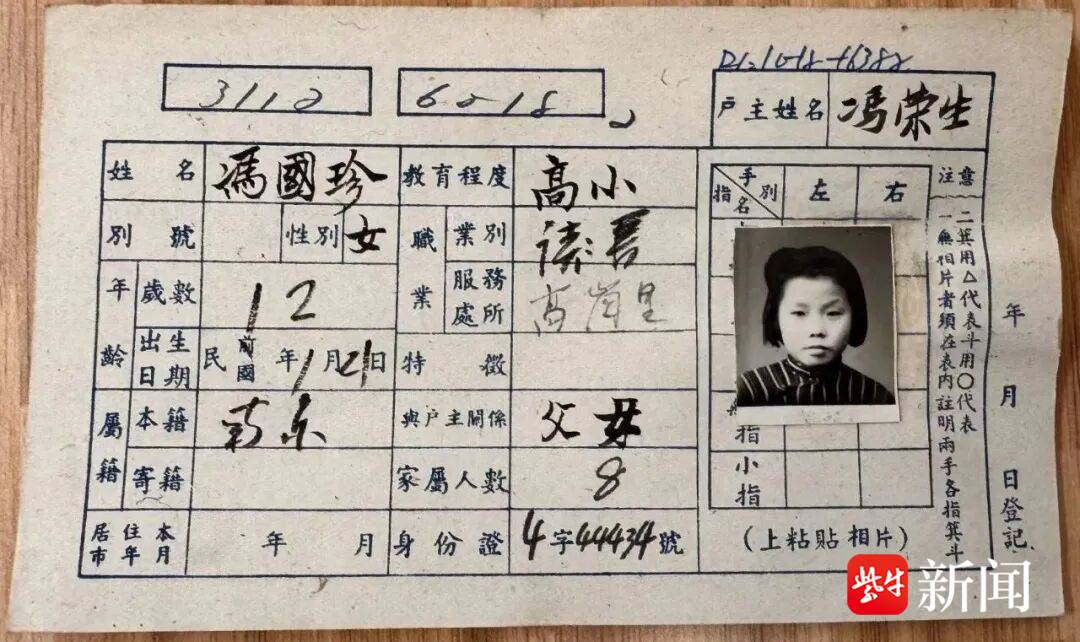 3112
戶主姓名 馮荣生
姓名 馮國珍 教育程度 高小
別號 性別 女 職業 業別 读書
年齡 歲數 12 服務處所 高崗里
出生日期 民國前 年1月21日 特徵
屬籍 本籍 南京 與戶主關係 父女
寄籍 家屬人數 8
居住本市年月 年 月 身份證 4字44434號
指名 手別 左 右
指
小指
(上粘貼相片)
注意
一無相片者須在表內註明兩手各指箕斗
二箕用△代表斗用○代表
年 月 日登記
紫牛新闻